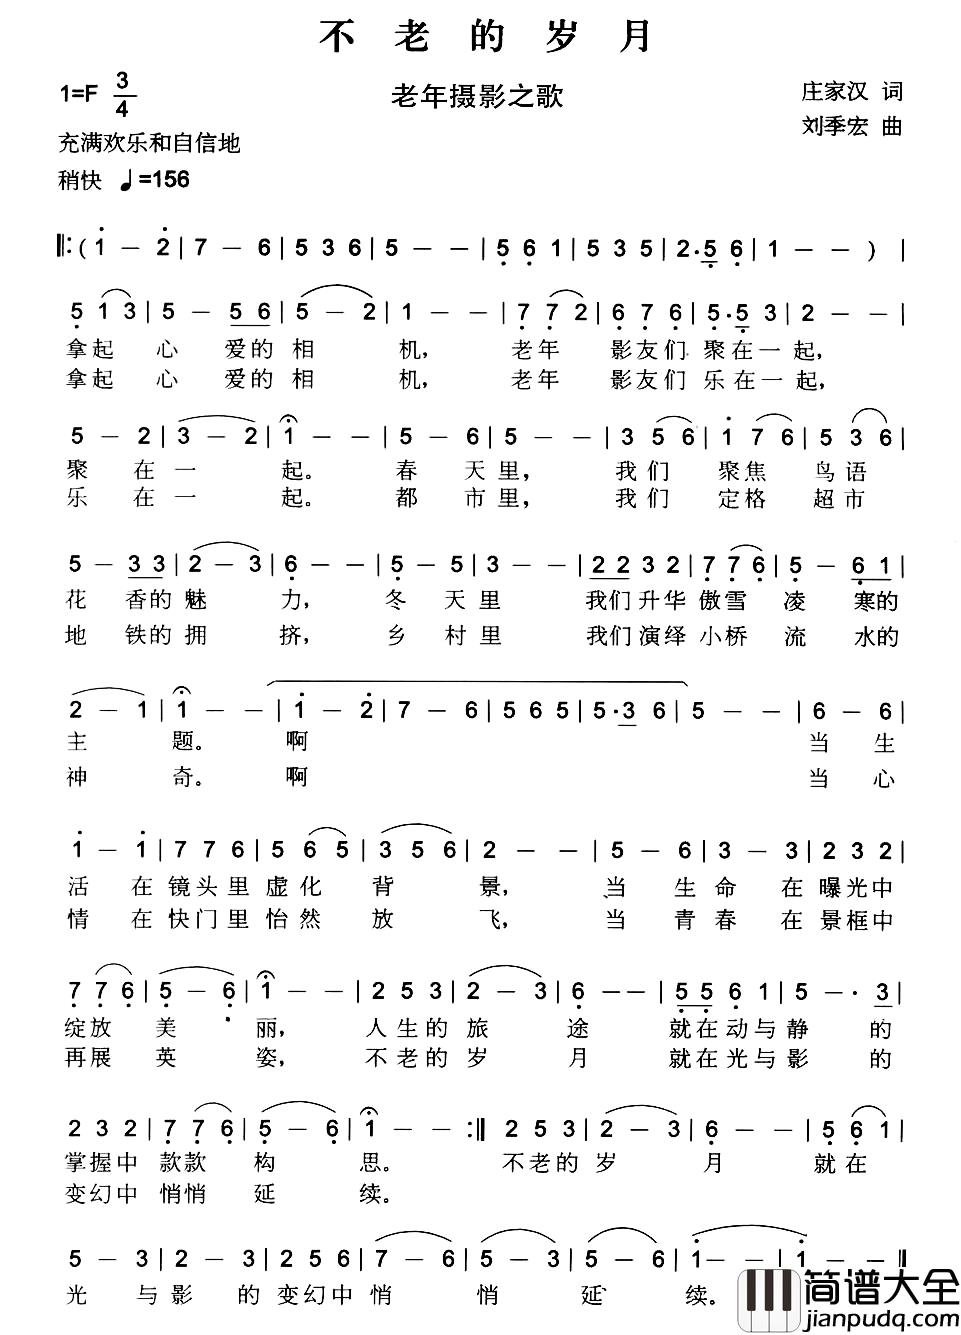 不老的岁月
1=F 3/4 老年摄影之歌 庄家汉 词
充满欢乐和自信地 刘季宏 曲
稍快 ♩=156
‖:( 1̇ － 2̇ | 7 － 6 | 5 3 6 | 5 － － | 5̣ 6̣ 1 | 5 3 5 | 2·5̣ 6̣ | 1 － － ) |
5̣ 1 3 | 5 － 5 6 | 5 － 2 | 1 － － | 7̣ 7̣ 2 | 6̣ 7̣ 6̣ | 5̣·5̣ 3 | 2 － － |
拿起 心 爱的 相 机， 老年 影友们 聚在一起，
拿起 心 爱的 相 机， 老年 影友们 乐在一起，
5 － 2 | 3 － 2 | 1 － － | 5 － 6 | 5 － － | 3 5 6 | 1̇ 7 6 | 5 3 6 |
聚 在 一 起。 春 天 里， 我们 聚焦 鸟语
乐 在 一 起。 都 市 里， 我们 定格 超市
5 － 3 3 | 2 － 3 | 6̣ － － | 5̣ － 5̣ | 3 － － | 2 2 3 2 | 7̣ 7̣ 6̣ | 5̣ － 6̣ 1 |
花 香的 魅 力， 冬 天 里 我们升华 傲雪 凌 寒的
地 铁的 拥 挤， 乡 村 里 我们演绎 小桥 流 水的
2 － 1 | 1 － － | 1̇ － 2̇ | 7 － 6 | 5 6 5 | 5·3 6 | 5 － － | 6 － 6 |
主 题。 啊 当 生
神 奇。 啊 当 心
1̇ － 1̇ | 7 7 6 | 5 6 5 | 3 5 6 | 2 － － | 5 － 6 | 3 － 3 | 2 3 2 |
活 在 镜头里 虚化 背 景， 当 生 命 在 曝光中
情 在 快门里 怡然 放 飞， 当 青 春 在 景框中
7̣ 7̣ 6̣ | 5̣ － 6̣ | 1 － － | 2 5 3 | 2 － 3 | 6̣ － － | 5̣ 5̣ 6̣ 1 | 5 － · 3 |
绽放 美 丽， 人生的 旅 途 就在动与静 的
再展 英 姿， 不老的 岁 月 就在光与影 的
2 3 2 | 7̣ 7̣ 6̣ | 5̣ － 6̣ | 1 － － :‖ 2 5 3 | 2 － 3 | 6̣ － － | 5̣ 6̣ 1 |
掌握中 款款 构 思。 不老的 岁 月 就在
变幻中 悄悄 延 续。
5 － 3 | 2 － 3 | 2 5 6 | 7 － 6 | 5 － 3 | 5 － 6 | 1̇ － － | 1̇ － － ‖
光 与 影 的 变幻中 悄 悄 延 续。
简谱大全
jianpudq.com